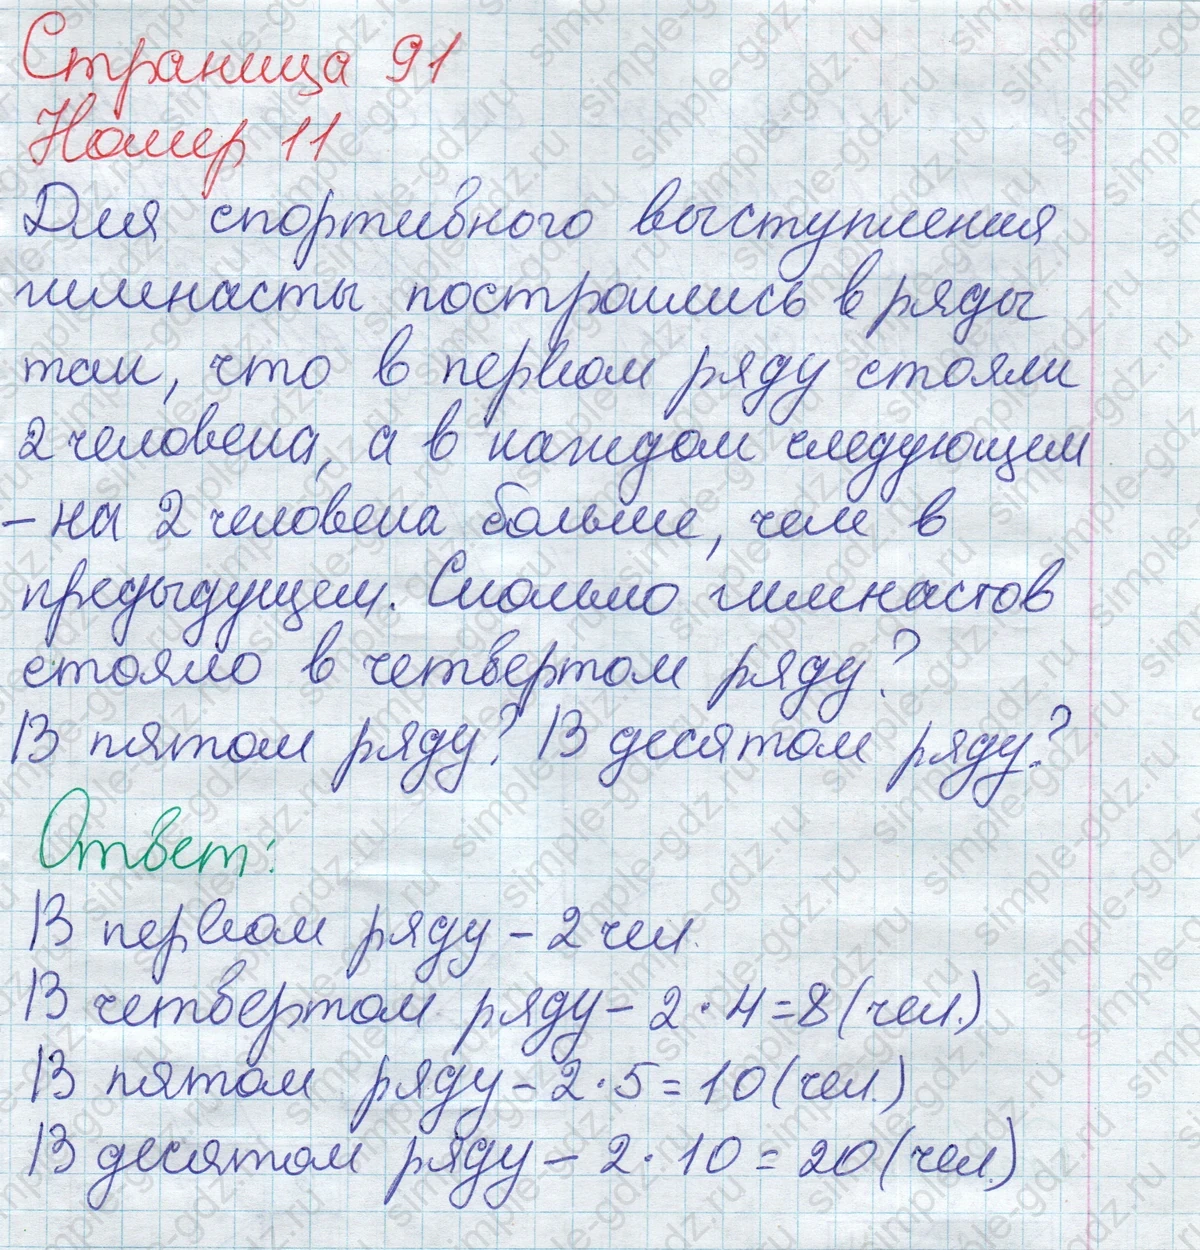 Страница 91
Номер 11
Для спортивного выступления
гимнасты построились в ряды
так, что в первом ряду стояли
2 человека, а в каждом следующем
- на 2 человека больше, чем в
предыдущем. Сколько гимнастов
стояло в четвертом ряду?
В пятом ряду? В десятом ряду?
Ответ:
В первом ряду - 2 чел.
В четвертом ряду - 2 · 4 = 8 (чел.)
В пятом ряду - 2 · 5 = 10 (чел.)
В десятом ряду - 2 · 10 = 20 (чел.)
simple-gdz.ru